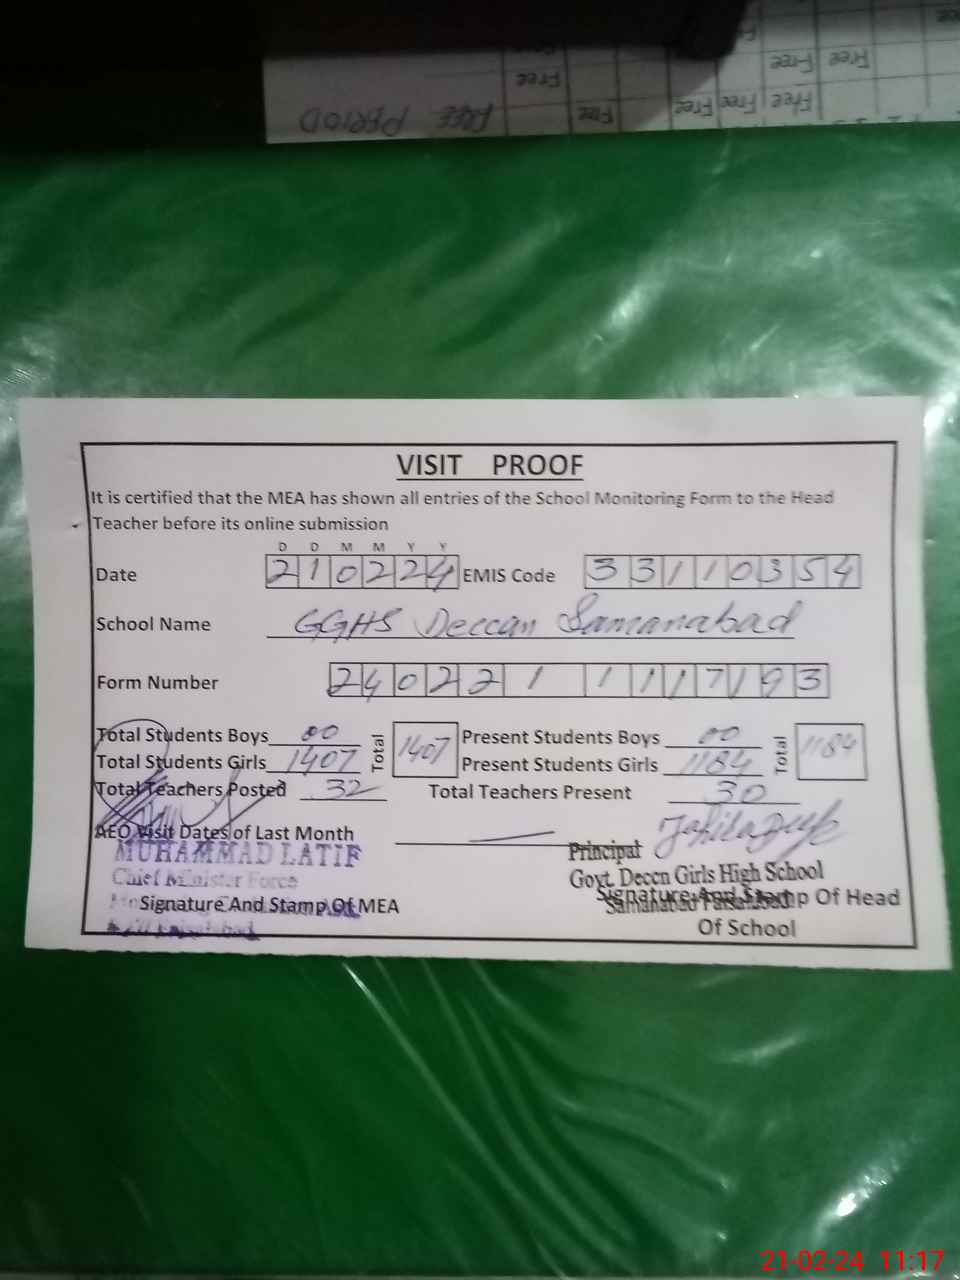 FREE PERIOD Free Free Free Free
Free Free Free Free
VISIT PROOF
It is certified that the MEA has shown all entries of the School Monitoring Form to the Head
Teacher before its online submission
D D M M Y Y
Date 210224 EMIS Code 33110354
School Name GGHS Deccan Samanabad
Form Number 2402211117193
Total Students Boys 00 Total 1407 Present Students Boys 00 Total 1184
Total Students Girls 1407 Present Students Girls 1184
Total Teachers Posted 32 Total Teachers Present 30
AEO Visit Dates of Last Month
MUHAMMAD LATIF Principal
Chief Minister Force Govt. Deccn Girls High School
Signature And Stamp Of MEA Signature And Stamp Of Head
Samanabad Faisalabad
Of School
21-02-24 11:17